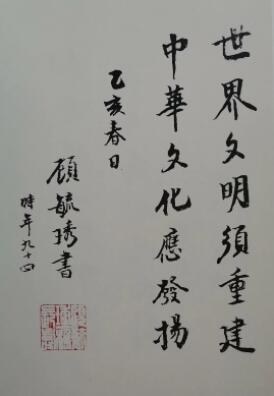 世界文明須重建
中華文化應發揚
乙亥春日
顧毓琇書
時年九十四